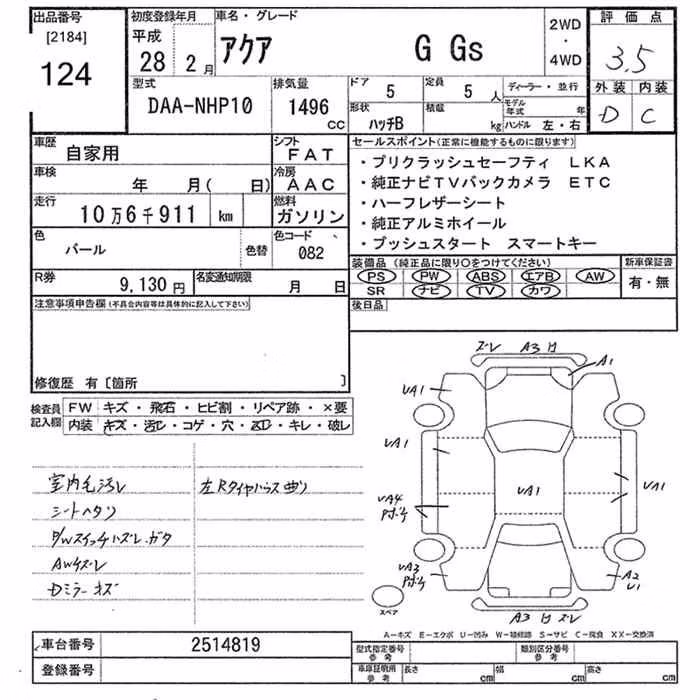 出品番号
[2184]
124
初度登録年月
平成
28年 2月
車名・グレード
アクア G Gs
2WD
・
4WD
評価点
3.5
外装 内装
D C
型式
DAA-NHP10
排気量
1496
CC
ドア 5
定員 5 人
ディーラー・並行
形状 ハッチB
積載 kg
モデル年式 年
ハンドル 左・右
車歴
自家用
シフト
FAT
車検
年 月( 日)
冷房
AAC
走行
10万6千911 km
燃料
ガソリン
色
パール
色替
色コード
082
R券
9,130円
名変通知期限
月 日
セールスポイント(正常に機能するものに限ります)
・プリクラッシュセーフティ LKA
・純正ナビTVバックカメラ ETC
・ハーフレザーシート
・純正アルミホイール
・プッシュスタート スマートキー
装備品 (純正品に限り○をつけてください)
PS PW ABS エアB AW
SR ナビ TV カワ
新車保証書
有・無
後日品
注意事項申告欄(不具合内容等は具体的に記入して下さい)
修復歴 有〔箇所 〕
検査員記入欄
FW キズ・飛石・ヒビ割・リペア跡・×要
内装 キズ・汚レ・コゲ・穴・ヌレ・キレ・破レ
室内毛汚レ
シートヘタリ
P/Wスイッチハズレ.ガタ
AWキズレ
Dミラーキズ
左Rタイヤハウス曲り
ズレ A3 ワ
A1
UA1
UA1
UA4
Pボケ
UA1
UA1
UA3
Pボケ
A2
U1
A3 ワ ズレ
スペア
A-キズ E-エクボ U-凹み W-補修跡 S-サビ C-腐食 XX-交換済
車台番号
2514819
登録番号
型式指定番号
参考
類別区分番号
参考
車庫証明用
参考
長さ cm
幅 cm
高さ cm